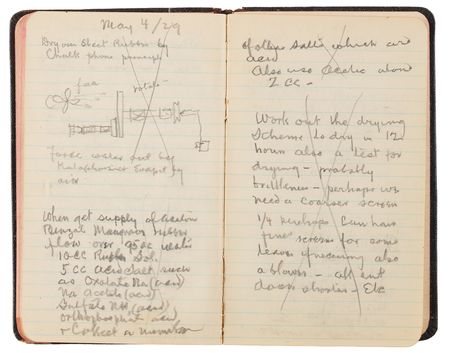 May 4/29
Dry our Sheet Rubber by
phone principle
fan
rotate
force water out by
by
air
When get supply of Aceton
Benzol rubber
flow over 95 cc water
10 CC Rubber Sol.
5 CC Acid Salt such
as Oxolate Na (acid)
Na Acetate (acid)
Sulfate NH (acid)
orthophosphat acid
& Collect a number
of other salts which are
acid
Also use Acetic alone
2 CC -
Work out the drying
scheme to dry in 12
hours also a test for
drying - probably
brittleness - perhaps we
need a coarser screen
1/4 perhaps Can have
fine screen for some
reason freezing also
a blower - all ent
doors shorter - Etc